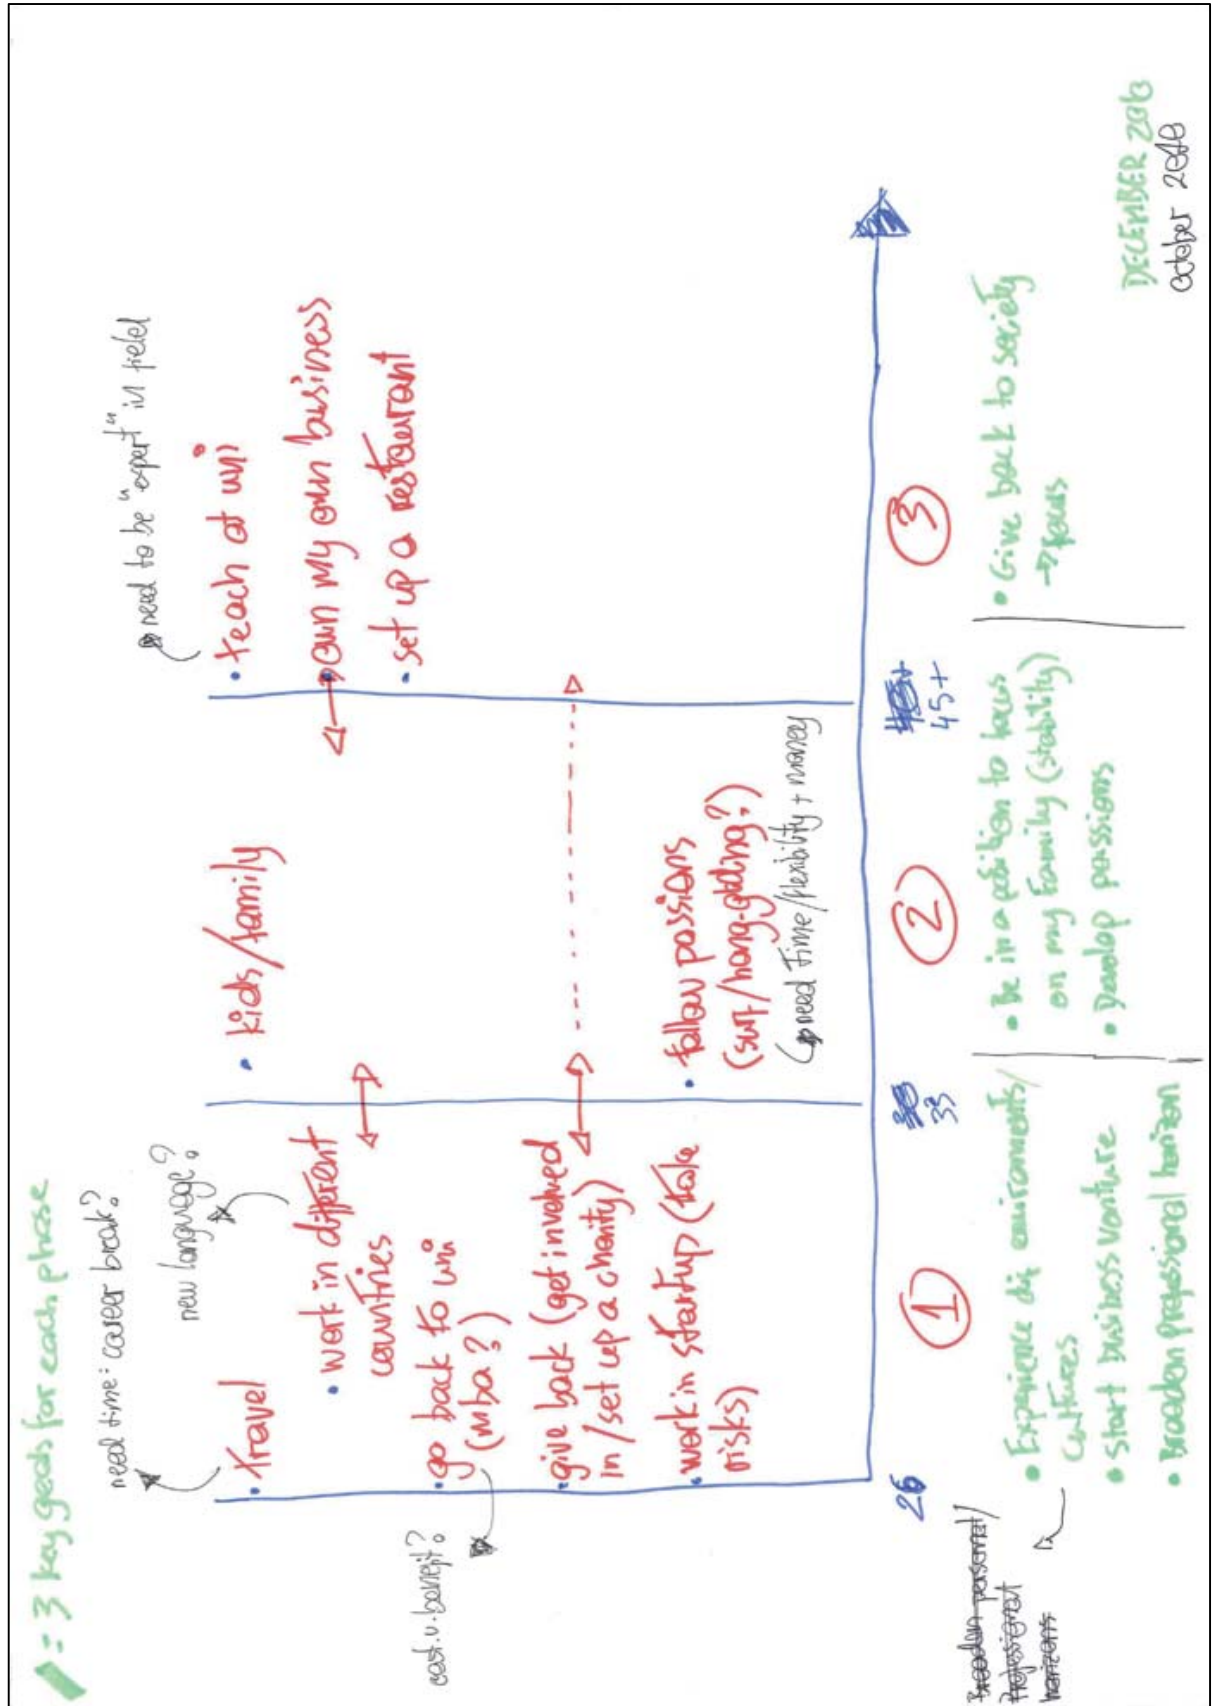 = 3 key goals for each phase
need time: career break?
new language?
need to be "expert" in field
• travel
• work in different
countries
cost.v.benefit?
• go back to uni
(mba?)
• give back (get involved
in/set up a charity)
• work in startup (take
risks)
• kids/family
• follow passions
(surf/hang-gliding?)
need time/flexibility + money
• teach at uni
• own my own business
• set up a restaurant
26
1
35
2
45+
3
Broaden personal/
Professional
horizons
• Experience dif environments/
cultures
• Start business venture
• Broaden professional horizon
• Be in a position to focus
on my family (stability)
• Develop passions
• Give back to society
→ focus
DECEMBER
October